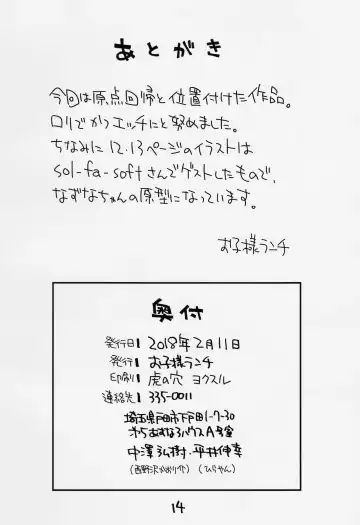 あとがき
今回は原点回帰と位置付けた作品。
ロリでかつエッチにと努めました。
ちなみに12.13ページのイラストは
sol-fa-softさんでゲストしたもので、
なずなちゃんの原型になっています。
お子様ランチ
奥付
発行日 2018年2月11日
発行 お子様ランチ
印刷 虎の穴 ヨクスル
連絡先 335-0011
埼玉県戸田市下戸田1-7-30
A号室
中澤弘樹・平井伸幸
(ひらやん)
14